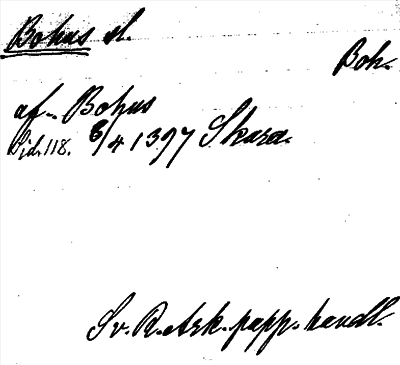 Bohus sl.
Boh.
af Bohus
Sid. 118. 6/4 1397 Skara.
Sv. R. Ark. papp. handl.